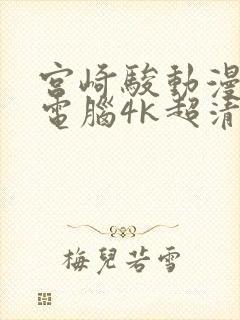 宮崎駿動漫
電腦4K超清
梅兒若雪